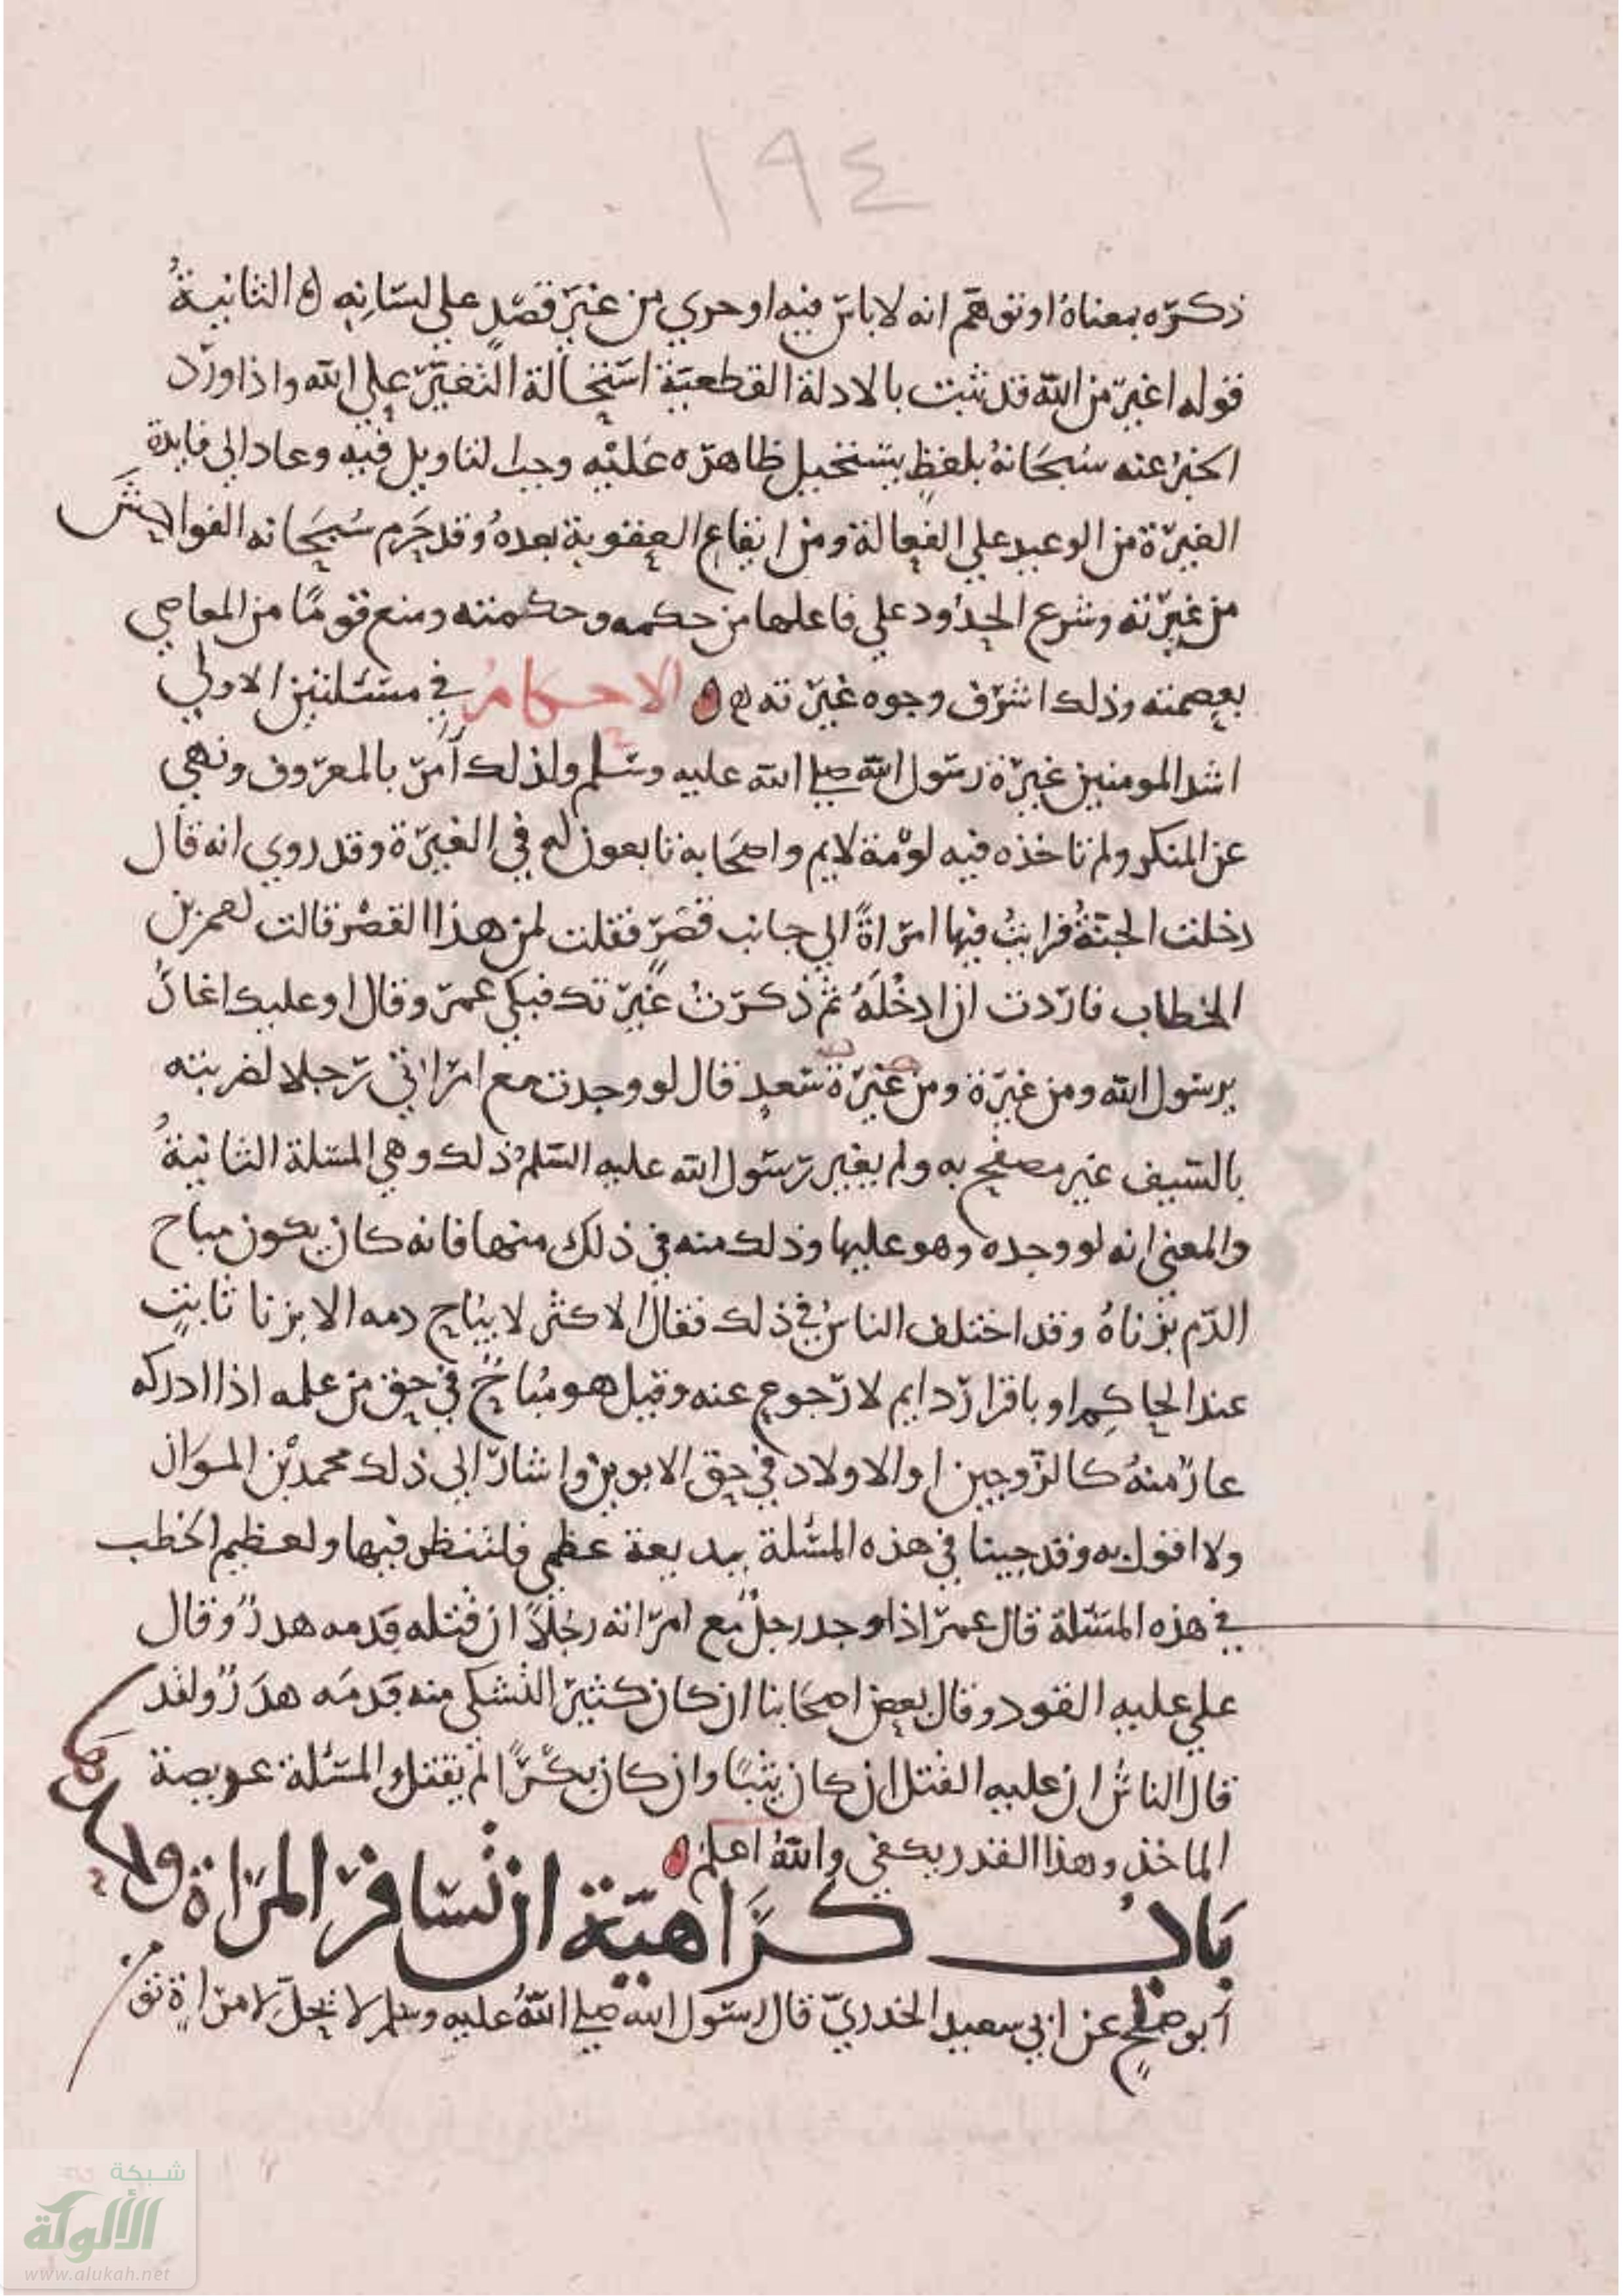 ١٩٤
ذكره بمعناه او توهم انه لا باس فيه او جري من غير قصد علي لسانه ه الثانية
قوله اغير من الله قد ثبت بالادلة القطعية استحالة التغير علي الله واذا ورد
الخبر عنه سبحانه بلفظ يستحيل ظاهره عليه وجب التاويل فيه وعاد الي فايدة
الغيرة من الوعيد علي الفعالة ومن ايقاع العقوبة بعده وقد حرم سبحانه الفواحش
من غيرته وشرع الحدود علي فاعلها من حكمه وحكمته ومنع قومًا من المعاصي
بعصمته وذلك اشرف وجوه غيرته ه ه الاحكام في مسئلتين الاولي
اشد المومنين غيرة رسول الله صلي الله عليه وسلم ولذلك امر بالمعروف ونهي
عن المنكر ولم تاخذه فيه لومة لايم واصحابه تابعون له في الغيرة وقد روي انه قال
دخلت الجنة فرايت فيها امراةً الي جانب قصر فقلت لمن هذا القصر قالت لعمر بن
الخطاب فاردت ان ادخله ثم ذكرت غيرتك فبكي عمر وقال اوعليك اغار
يرسول الله ومن غيرة ومن غيرة سعد قال لو وجدت مع امراتي رجلا لضربته
بالسيف غير مصفح به ولم يغير رسول الله عليه السلم ذلك وهي المسلة الثانية
والمعني انه لو وجده وهو عليها وذلك منه في ذلك منها فانه كان يكون مباح
الدم بزناه وقد اختلف الناس في ذلك فقال الاكثر لا يباح دمه الا بزنا ثابت
عند الحاكم او باقرار دايم لا رجوع عنه وقيل هو مباح في حق من علمه اذا ادركه
عار منه كالزوجين او الاولاد في حق الابوين واشار الي ذلك محمد بن المواز
ولا اقول به وقد جينا في هذه المسئلة ببديعة عظمي فلتنظر فيها ولعظيم الخطب
في هذه المسئلة قال عمر اذا وجد رجل مع امراته رجلاً ان قتله فدمه هدر وقال
علي عليه القود وقال بعض اصحابنا ان كان كثير التشكي منه فدمه هدر ولقد
قال الناس ان عليه القتل ان كان ثيبًا وان كان بكرًا لم يقتل والمسئلة عويصة
الماخذ وهذا القدر يكفي والله اعلم ه
باب كراهية ان تسافر المراة وحدها
ابو صلح عن ابي سعيد الخدري قال رسول الله صلي الله عليه وسلم لا يحل لامراة تو
شبكة
الألوكة
www.alukah.net